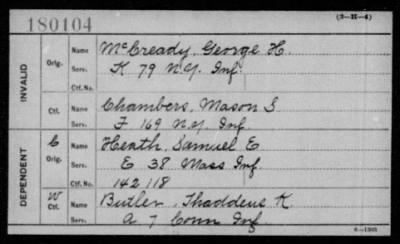 180104
(3-H-4)
INVALID
Orig.
Name McCready, George H.
Serv. K 79 N.Y. Inf.
Ctf. No.
Ctf.
Name Chambers, Mason S.
Serv. F 169 N.Y. Inf.
DEPENDENT
C
Orig.
Name Heath, Samuel E
Serv. E 38 Mass Inf.
Ctf. No. 142118
W
Ctf.
Name Butler, Thaddeus K.
Serv. A 7 Conn Inf.